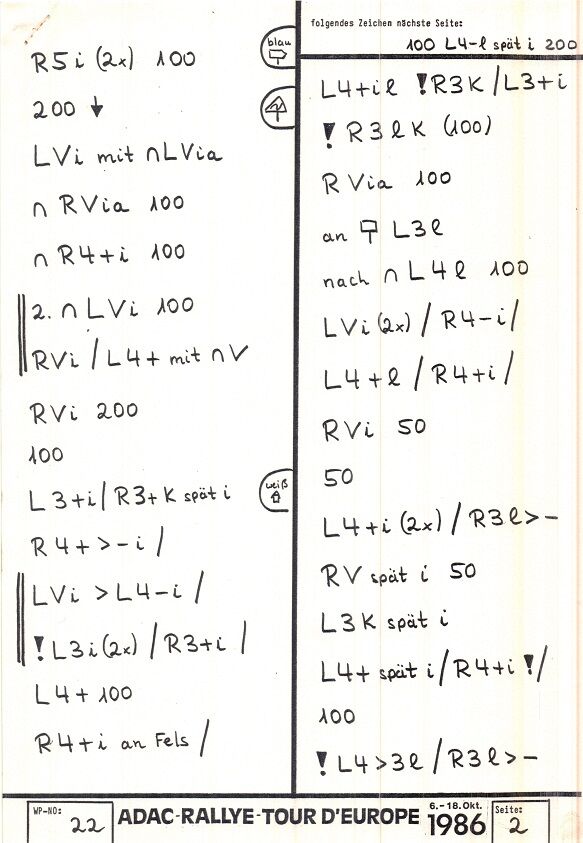 R5i (2x) 100
blau
200 ↓
LVi mit ∩LVia
∩ RVia 100
∩ R4+i 100
2. ∩ LVi 100
RVi / L4+ mit ∩V
RVi 200
100
L3+i / R3+K spät i
weiß
R4+ >-i /
LVi >L4-i /
! L3i(2x) / R3+i /
L4+ 100
R4+i an Fels /
folgendes Zeichen nächste Seite:
100 L4-l spät i 200
L4+il !R3K /L3+i
! R3lK (100)
RVia 100
an L3l
nach ∩ L4l 100
LVi(2x) / R4-i/
L4+l / R4+i /
RVi 50
50
L4+i(2x) / R3l>-
RV spät i 50
L3K spät i
L4+ spät i/R4+i !/
100
! L4>3l / R3l>-
WP-NO: 22
ADAC-RALLYE-TOUR D'EUROPE
6.-18.Okt. 1986
Seite: 2